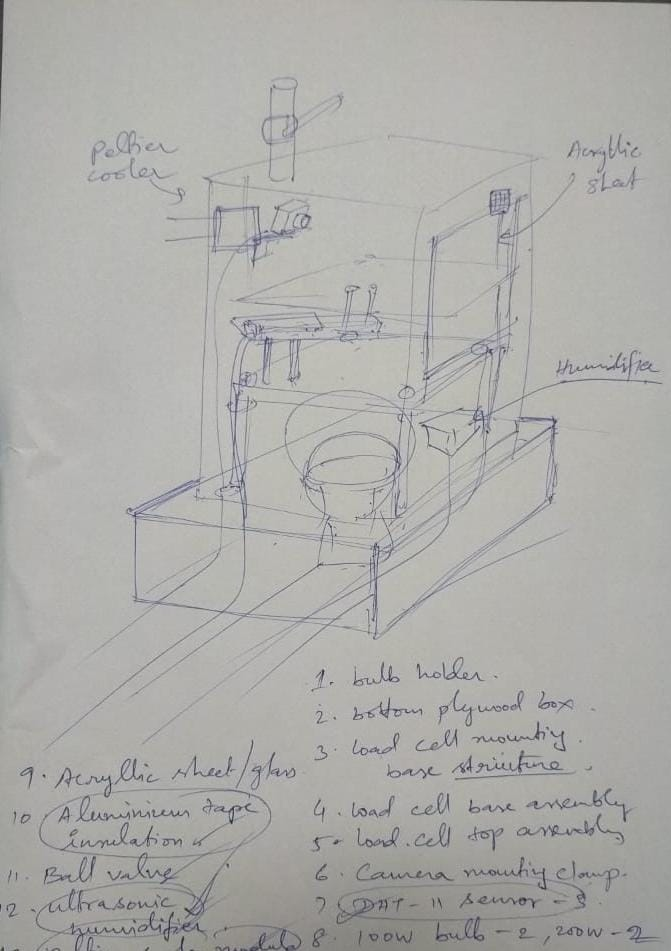 Peltier
cooler
Acryllic
sheet
Humidifier
1. bulb holder.
2. bottom plywood box.
3. load cell mounting
base structure.
4. load cell base assembly
5. Load cell top assembly
6. Camera mounting clamp.
7 DHT-11 sensor - 3.
8. 100W bulb - 2, 200W - 2
9. Acryllic sheet/glass
10 Aluminium tape
insulation
11. Ball valve
12. ultrasonic
humidifier.
module